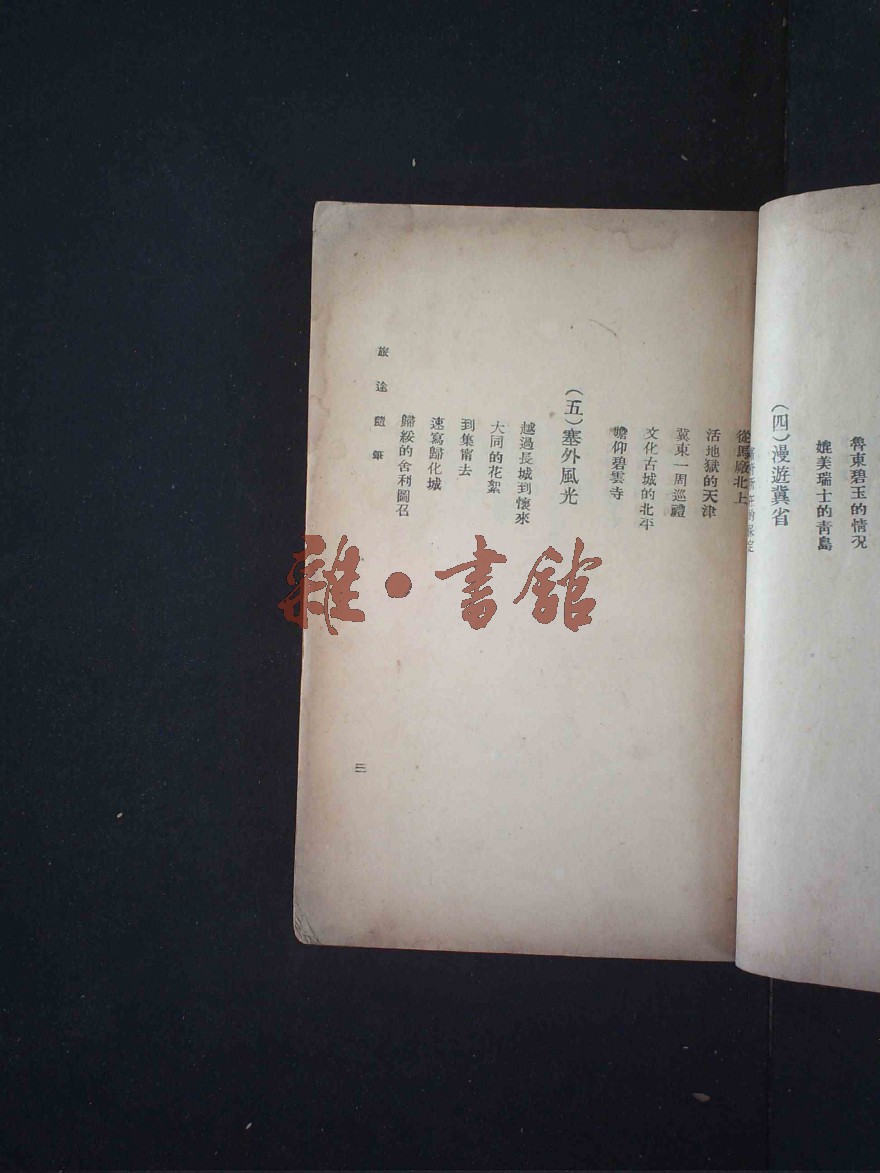 魯東碧玉的情況
媲美瑞士的青島
（四）漫遊冀省
從馬廠北上
活地獄的天津
冀東一周巡禮
文化古城的北平
瞻仰碧雲寺
（五）塞外風光
越過長城到懷來
大同的花絮
到集甯去
速寫歸化城
歸綏的舍利圖召
旅途隨筆
三
雜·書館